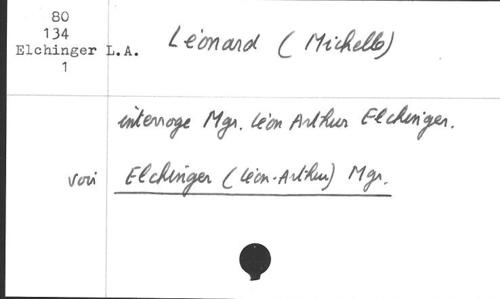 80
134
Elchinger L.A.
1
Léonard (Michelle)
interroge Mgr. Léon Arthur Elchinger.
voir Elchinger (Léon-Arthur) Mgr.